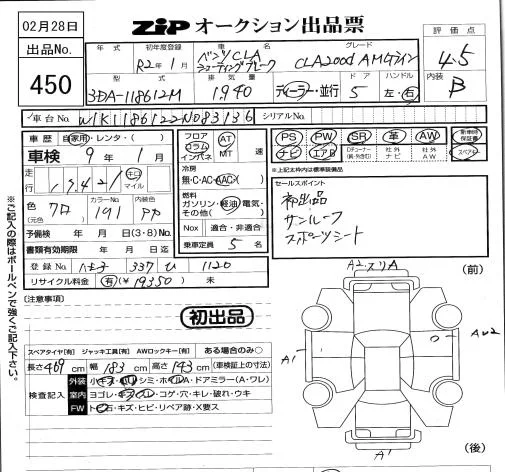 02月28日
ZIP オークション出品票
出品No.
450
年式
初年度登録
R2年1月
車名
ベンツCLA
シューティングブレーク
グレード
CLA200d AMGライン
評価点
4.5
型式
3DA-118612M
排気量
1,940
ディーラー・並行
ドア
5
ハンドル
左・右
内装
B
車台No. W1K1186122N083136
シリアルNo.
車歴 自家用・レンタ・( )
車検 9年1月
走行 キロ マイル
色 (元色) クロ
カラーNo. 191
内装色
予備検 年 月 日(3・8)No.
書類有効期限 年 月 日迄
登録No. 八王子 337 ひ 1120
リサイクル料金 有(¥19350) 未
フロア
コラム
インパネ
AT
MT
速
冷房
無・C・AC・AAC( )
燃料
ガソリン・軽油・電気・
その他( )
Nox 適合・非適合
乗車定員 5 名
PS PW SR 革 AW
ナビ エアB
Dチューナー
(純・外含む)
社外
ナビ
社外
AW
新車時
保証書
スペアキー
※上記太枠内は標準装備品
セールスポイント
初出品
サンルーフ
スポーツシート
(注意事項)
初出品
スペアタイヤ[有] ジャッキ工具[有] AWロックキー[有] ある場合のみ○
長さ469cm 幅183cm 高さ143cm (車検証上の寸法)
検査記入
外装 小キズ・凹・シミ・ホイルA・ドアミラー(A・ワレ)
室内 ヨゴレ・キズ・スレ・コゲ・穴・キレ・破れ・ウキ
FW ト○石・キズ・ヒビ・リペア跡・X要ス
A2 スリA
(前)
A1
AW2
A1
(後)
※ご記入の際はボールペンで強くご記入下さい。